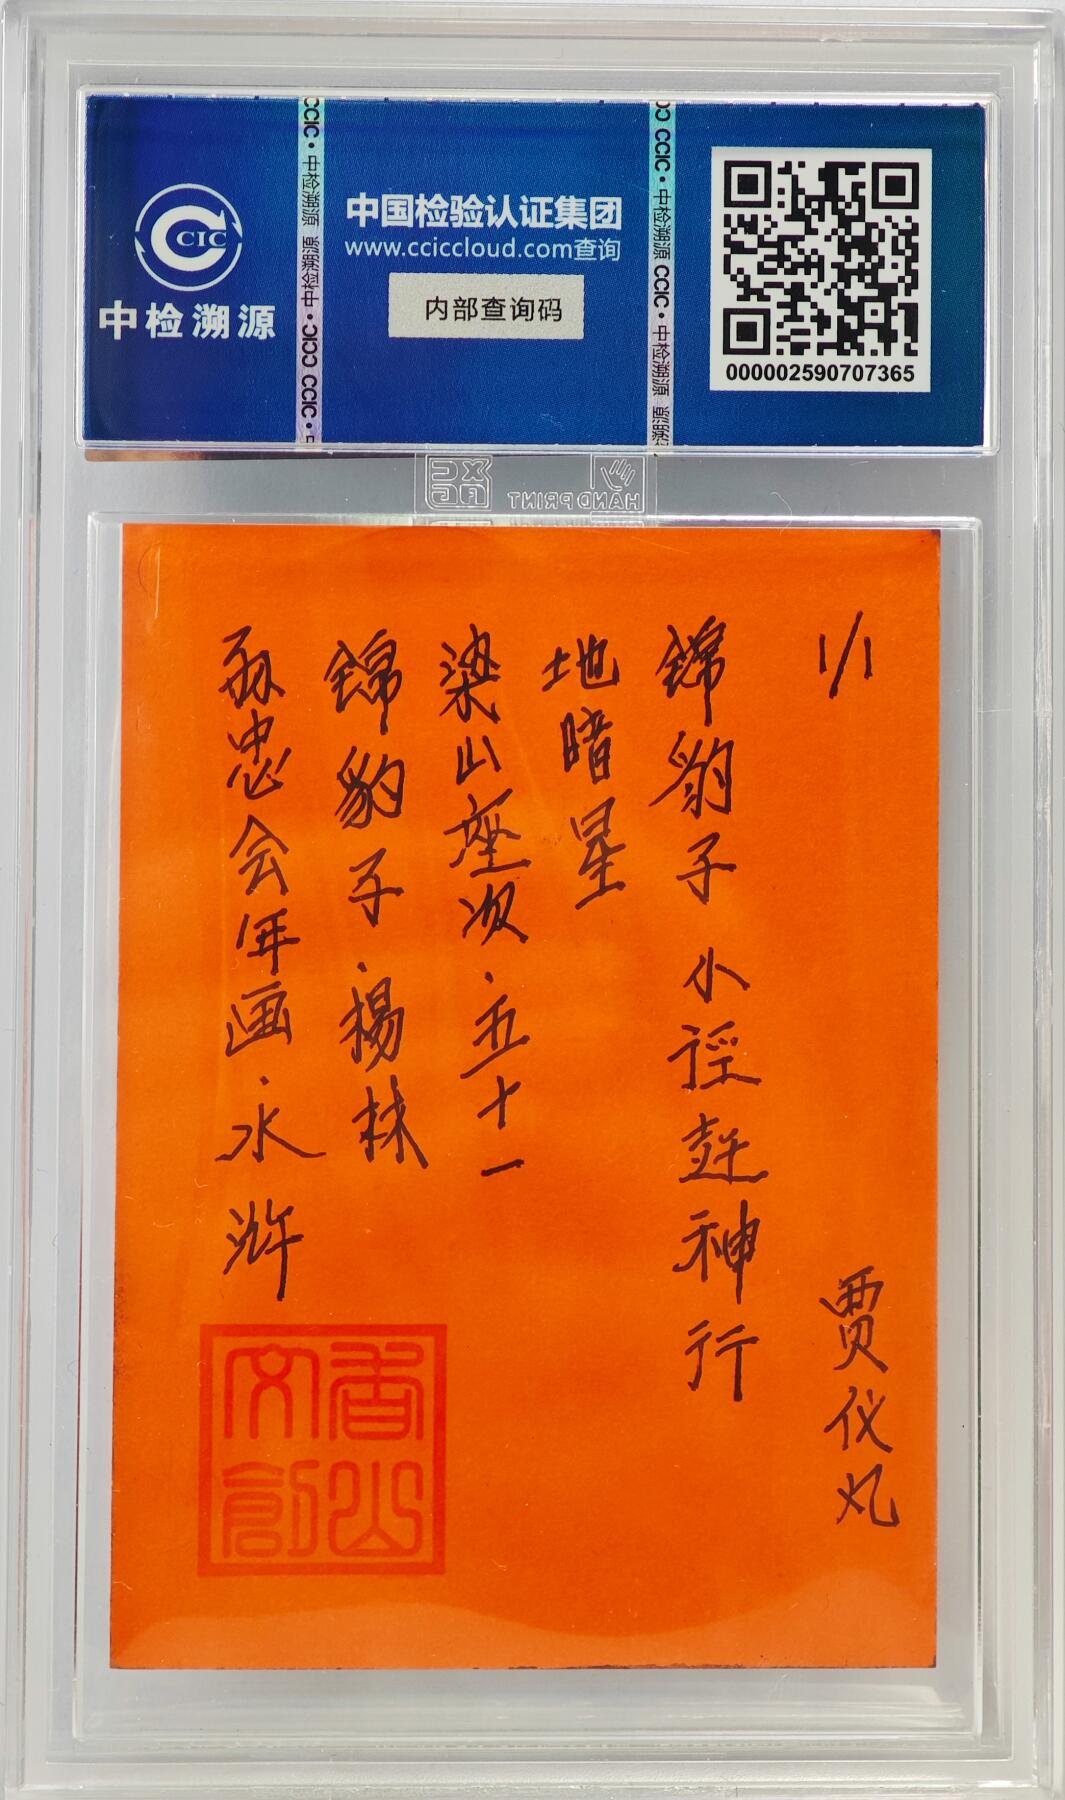 中国检验认证集团
www.cciccloud.com查询
内部查询码
CCIC
中检溯源
000002590707365
CCIC·中检溯源
CCIC·中检溯源
HANDPRINT
1/1
贾仪
锦豹子小径逢神行
地暗星
梁山座次·五十一
锦豹子·楊林
孙忠会年画·水浒
香山文創